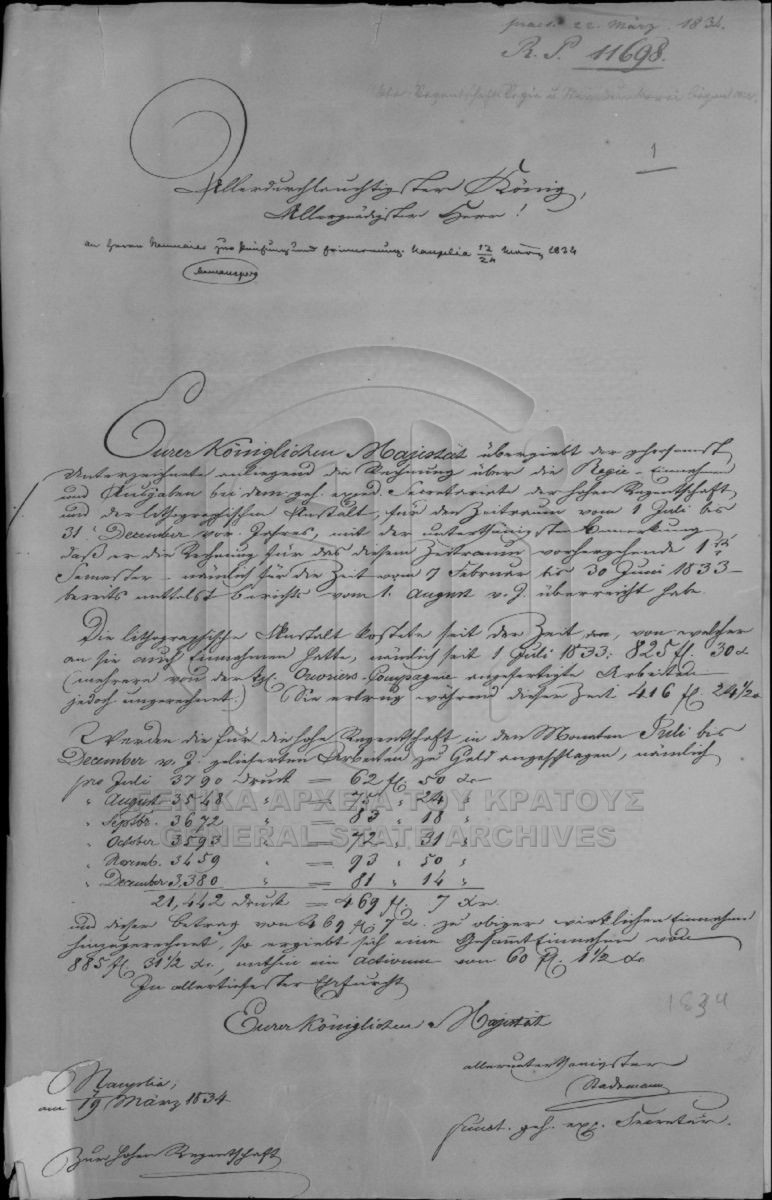 praes. 22. März. 1834.
R. P. 11698.
1
Allerdurchlauchtigster König,
Allergnädigster Herr!
An Herrn Neumaier zur Prüfung und Erinnerung. Nauplia 12/24 März 1834
Armansperg
Eurer Königlichen Majestät übergiebt der gehorsamst
Unterzeichnete anliegend die Rechnung über die Regie-Einnahmen
und Ausgaben bei dem geh. exped. Secretariate der hohen Regentschaft
und der lithographischen Anstalt, für den Zeitraum vom 1 Juli bis
31. December vor. Jahres, mit der unterthänigsten Bemerkung
daß er die Rechnung für das diesem Zeitraum vorhergehende 1te
Semester - nämlich für die Zeit vom 7 Februar bis 30 Juni 1833 -
bereits mittelst Berichts vom 1. August v. J. überreicht habe.
Die lithographische Anstalt kostete seit der Zeit, von welcher
an sie auch Einnahmen hatte, nämlich seit 1 Juli 1833: 825 fl. 30 x
(mehrere von der kgl. Ouvriers-Compagnie angefertigte Arbeiten
jedoch ungerechnet.) (Sie ertrug während dieser Zeit 416 fl. 24 1/2 x
Werden die für die hohe Regentschaft in den Monaten Juli bis
December v. J. gelieferten Arbeiten zu Geld angeschlagen, nämlich
pro Juli 3790 Druck = 62 fl. 50 xr
" August 3548 " = 75 " 24 "
" Septbr. 3672 " = 83 " 18 "
" October 3593 " = 72 " 31 "
" Novemb. 3459 " = 93 " 50 "
" December 3,380 " = 81 " 14 "
21,442 Druck = 469 fl. 7 xr.
und dieser Betrag von 469 fl 7 x. zu obiger wirklichen Einnahme
hinzugerechnet, so ergiebt sich eine Gesammt Einnahme von
885 fl. 31 1/2 xr, mithin ein Activum von 60 fl. 1 1/2 xr
In allertiefester Ehrfurcht
Eurer Königlichen Majestät
1834
Nauplia,
am 19 März 1834
allerunterthänigster
Stademann
funct. geh. exp. Secretär.
Zur hohen Regentschaft
ΓΕΝΙΚΑ ΑΡΧΕΙΑ ΤΟΥ ΚΡΑΤΟΥΣ
GENERAL STATE ARCHIVES